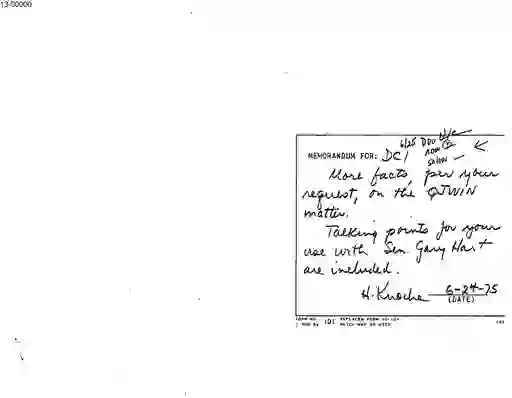 13-00000
6/25 DDO
MEMORANDUM FOR: DCI
More facts, per your
request, on the QJWIN
matter.
Talking points for your
use with Sen. Gary Hart
are included.
H. Knoche 6-24-75
(DATE)
FORM NO. 101 REPLACES FORM 10-101
WHICH MAY BE USED.